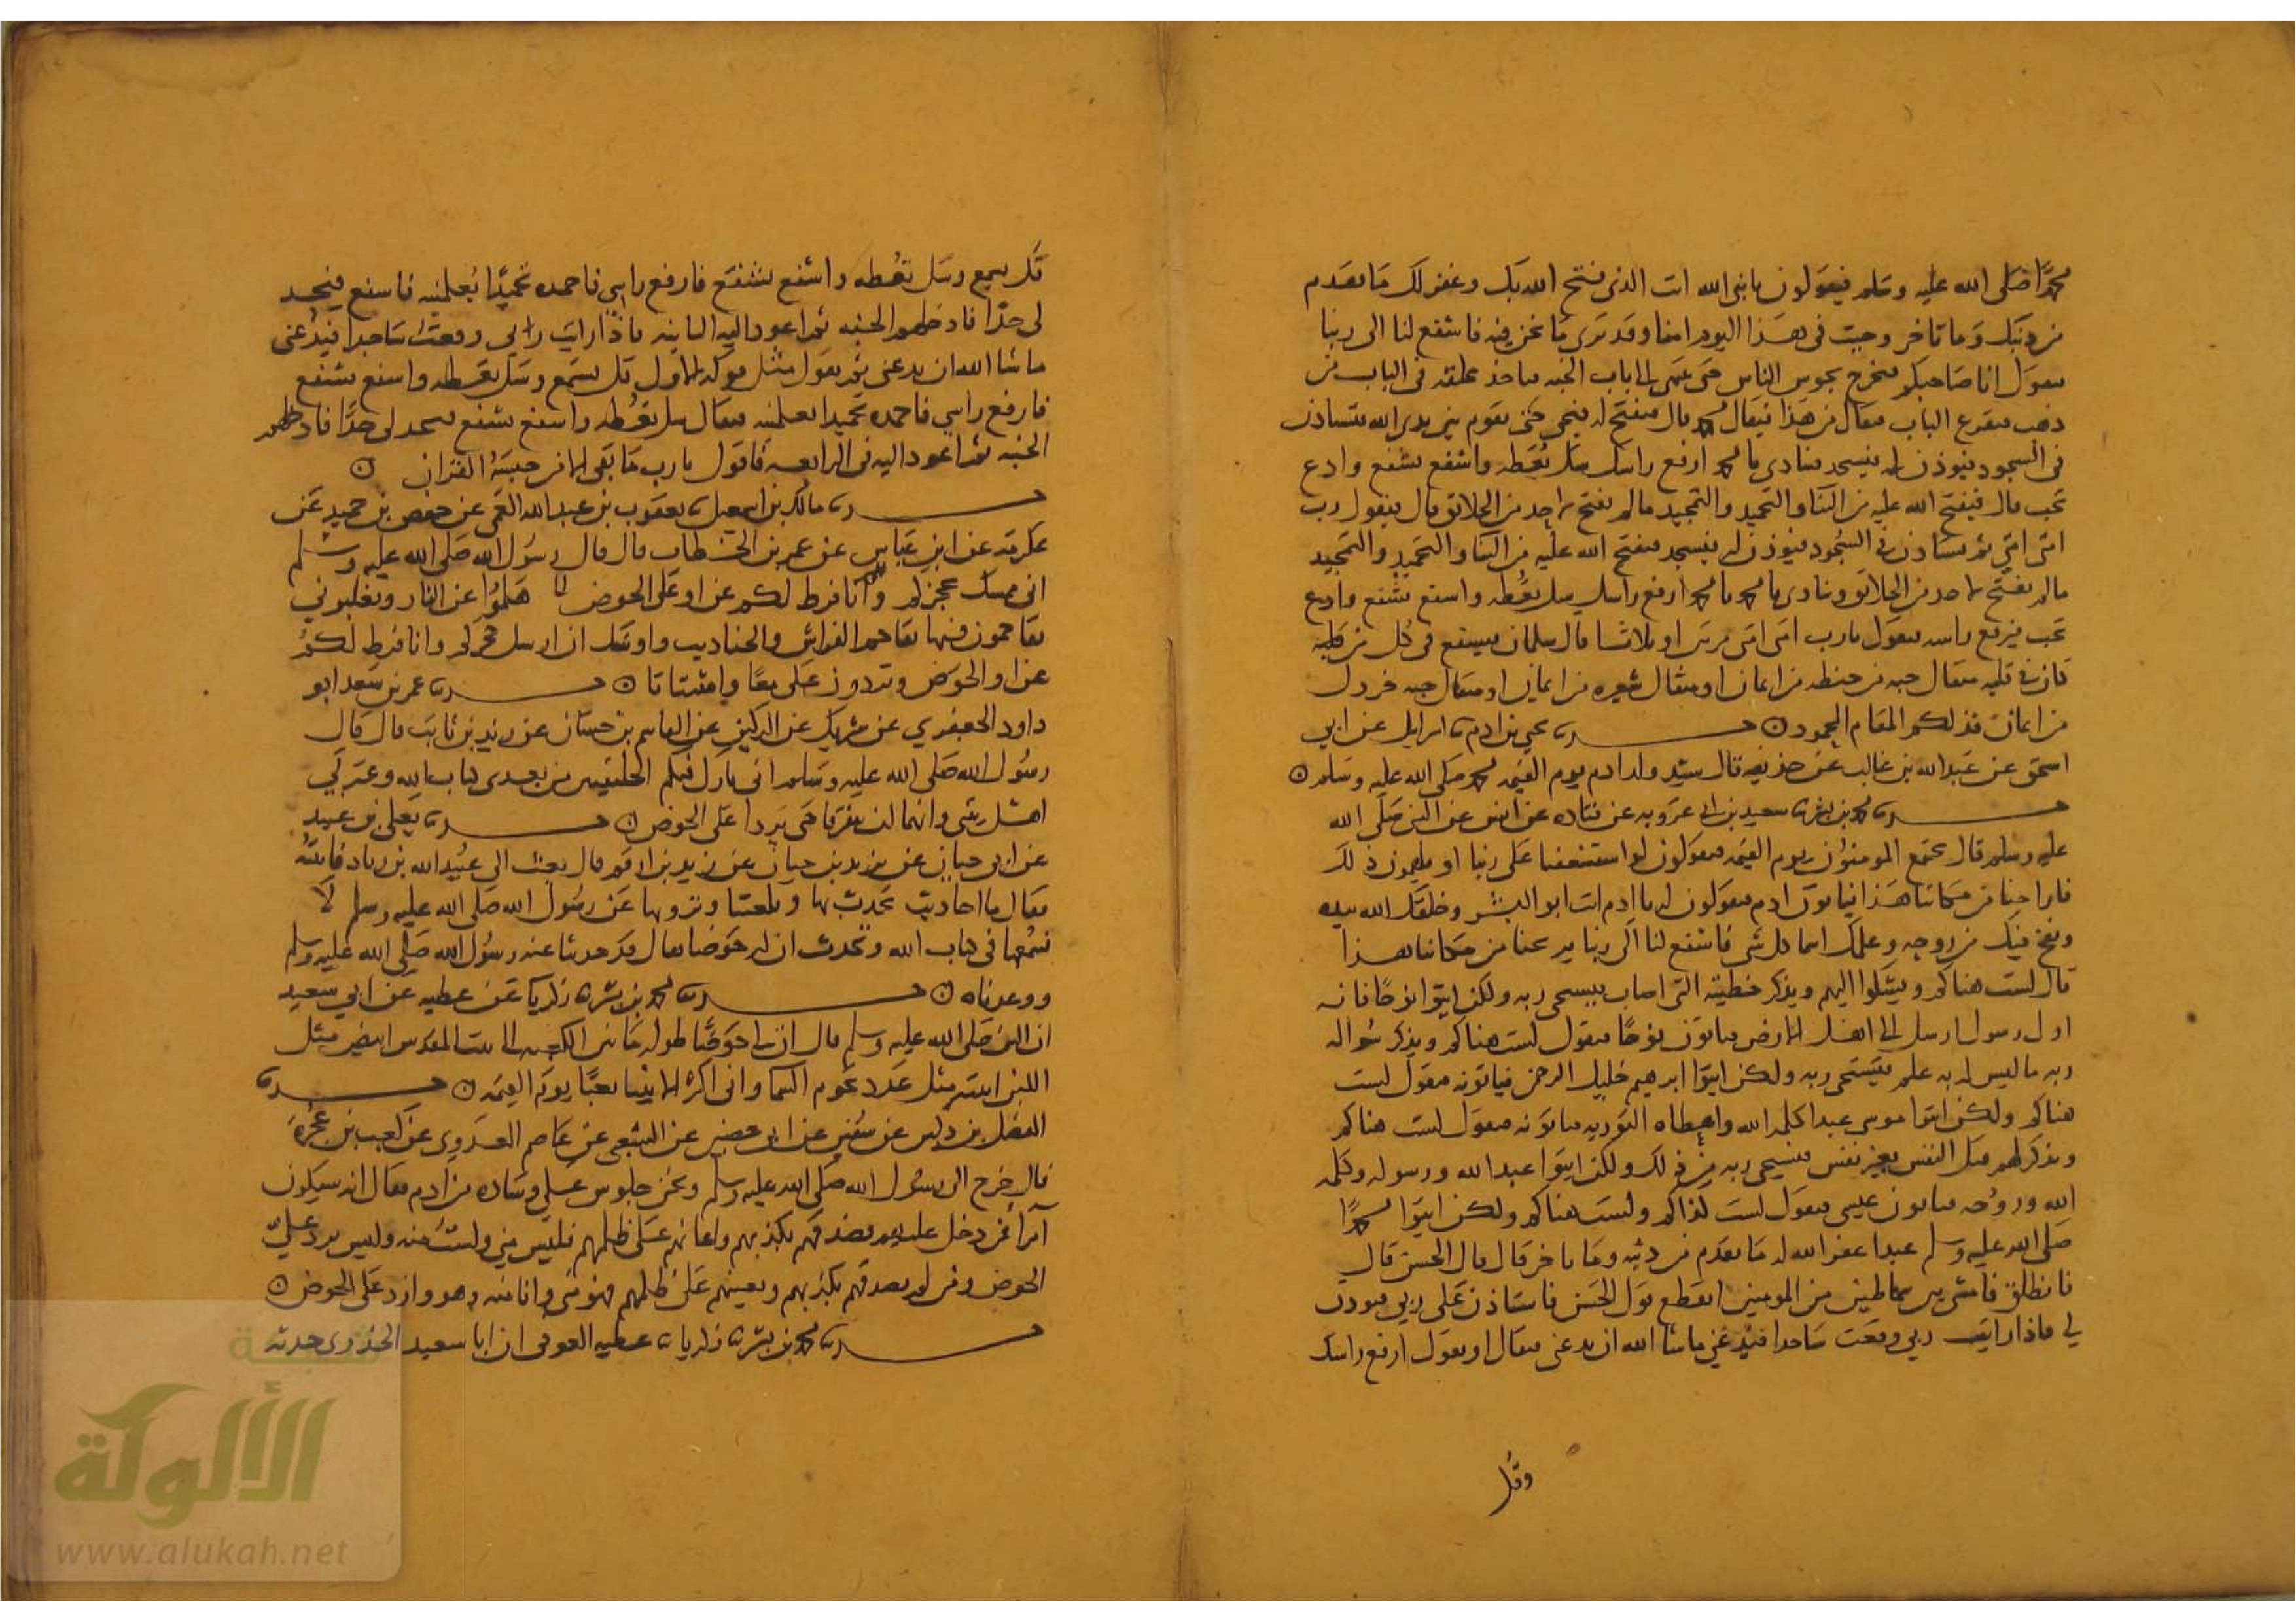 محمدا صلى الله عليه وسلم فيقولون يا نبي الله انت الذي فتح الله بك وغفر لك ما تقدم
من ذنبك وما تاخر وجيت في هذا اليوم امنا وقد ترى ما نحن فيه فاشفع لنا الى ربنا
فيقول انا صاحبكم فيخرج يجوس الناس حتى ينتهي الى باب الجنه فياخذ بحلقه في الباب من
ذهب فيقرع الباب فيقال من هذا فيقال محمد قال فيفتح له فيجي حتى يقوم بين يدي الله فيستاذن
في السجود فيوذن له فيسجد فينادي يا محمد ارفع راسك سل تعطه واشفع تشفع وادع
تجب قال فيفتح الله عليه من الثنا والتحميد والتمجيد ما لم يفتح لاحد من الخلائق قال فيقول رب
امتي امتي ثم يستاذن في السجود فيوذن له فيسجد فيفتح الله عليه من الثنا والتحميد والتمجيد
ما لم يفتح لاحد من الخلائق وينادي يا محمد يا محمد ارفع راسك سل تعطه واشفع تشفع وادع
تجب فيرفع راسه فيقول يا رب امتي امتي مرتين او ثلاثا قال سلمان فيشفع في كل من
كان في قلبه مثقال حبه من حنطه من ايمان او مثقال شعيره من ايمان او مثقال حبه خردل
من ايمان فذلكم المقام المحمود حدثنا يحيى بن ادم ثنا اسرايل عن ابي
اسحق عن عبدالله بن غالب عن حذيفه قال سيد ولد ادم يوم القيمه محمد صلى الله عليه وسلم
حدثنا محمد بن بشر ثنا سعيد بن ابي عروبه عن قتاده عن انس عن النبي صلى الله
عليه وسلم قال يجتمع المومنون يوم القيمه فيقولون لو استشفعنا على ربنا او يلهمون ذلك
فاراحنا من مكاننا هذا فياتون ادم فيقولون له يا ادم انت ابو البشر وخلقك الله بيده
ونفخ فيك من روحه وعلمك اسما كل شي فاشفع لنا الى ربنا يرحنا من مكاننا هذا
قال لست هناكم ويشكوا اليهم ويذكر خطيئته التي اصاب فيستحي ربه ولكن ايتوا نوحا فانه
اول رسول ارسل الى اهل الارض فياتون نوحا فيقول لست هناكم ويذكر سواله
ربه ما ليس له به علم فيستحي ربه ولكن ايتوا ابرهيم خليل الرحمن فياتونه فيقول لست
هناكم ولكن ايتوا موسى عبدا كلمه الله واعطاه التوريه فياتونه فيقول لست هناكم
ويذكر لهم قتل النفس بغير نفس فيستحي ربه من ذلك ولكن ايتوا عبدالله ورسوله وكلمه
الله وروحه فياتون عيسى فيقول لست لذاكم ولست هناكم ولكن ايتوا محمدا
صلى الله عليه وسلم عبدا غفر الله له ما تقدم من ذنبه وما تاخر قال قال الحسن قال
فانطلق فامشي بين سماطين من المومنين انقطع قول الحسن فاستاذن على ربي فيوذن
لي فاذا رايت ربي وقعت ساجدا فيدعني ما شا الله ان يدعني فيقال او يقول ارفع راسك
وقل
قل يسمع وسل تعطه واشفع تشفع فارفع راسي فاحمده تحميدا يعلمنيه فاشفع فيحد
لي حدا فادخلهم الجنه ثم اعود اليه الثانيه فاذا رايت ربي وقعت ساجدا فيدعني
ما شا الله ان يدعني ثم يقول مثل قوله الاول قل يسمع وسل تعطه واشفع تشفع
فارفع راسي فاحمده تحميدا يعلمنيه فيقال سل تعطه واشفع تشفع فيحد لي حدا فادخلهم
الجنه ثم اعود اليه في الرابعه فاقول يا رب ما بقي الا من حبسه القران
حدثنا مالك بن اسمعيل ثنا يعقوب بن عبدالله القمي عن حفص بن حميد عن
عكرمه عن ابن عباس عن عمر بن الخطاب قال قال رسول الله صلى الله عليه وسلم
اني ممسك بحجزكم وانا فرط لكم عن او على الحوض هلموا عن النار وتغلبوني
تقاحمون فيها تقاحم الفراش والجنادب واوشك ان ارسل حجزكم وانا فرط لكم
عن او الحوض وتردون علي معا واشتاتا حدثنا عمر بن سعد ابو
داود الحفري عن شريك عن الركين عن القاسم بن حسان عن زيد بن ثابت قال قال
رسول الله صلى الله عليه وسلم اني تارك فيكم الخليفتين من بعدي كتاب الله وعترتي
اهل بيتي وانهما لن يتفرقا حتى يردا على الحوض حدثنا يعلى بن عبيد
عن ابي حيان عن يزيد بن حيان عن زيد بن ارقم قال بعث الي عبيد الله بن زياد فاتيته
فقال ما احاديث تحدث بها وبلغتنا وترويها عن رسول الله صلى الله عليه وسلم لا
نسمعها في كتاب الله وتحدث ان له حوضا فقال قد حدثنا عنه رسول الله صلى الله عليه وسلم
ووعدناه حدثنا محمد بن بشر ثنا زكريا عن عطيه عن ابي سعيد
ان النبي صلى الله عليه وسلم قال ان لي حوضا طوله ما بين الكعبه الى بيت المقدس ابيض مثل
اللبن انيته مثل عدد نجوم السما واني اكثر الانبيا تبعا يوم القيمه حدثنا
الفضل بن دكين عن سفين عن ابي حصين عن الشعبي عن عاصم العدوي عن كعب بن عجره
قال خرج الينا رسول الله صلى الله عليه وسلم ونحن جلوس على وساده من ادم فقال انه سيكون
امرا فمن دخل عليهم فصدقهم بكذبهم واعانهم على ظلمهم فليس مني ولست منه وليس يرد علي
الحوض ومن لم يصدقهم بكذبهم ويعينهم على ظلمهم فهو مني وانا منه وهو وارد على الحوض
حدثنا محمد بن بشر ثنا زكريا ثنا عطيه العوفي ان ابا سعيد الخدري حدثه
شبكة
الألوكة
www.alukah.net